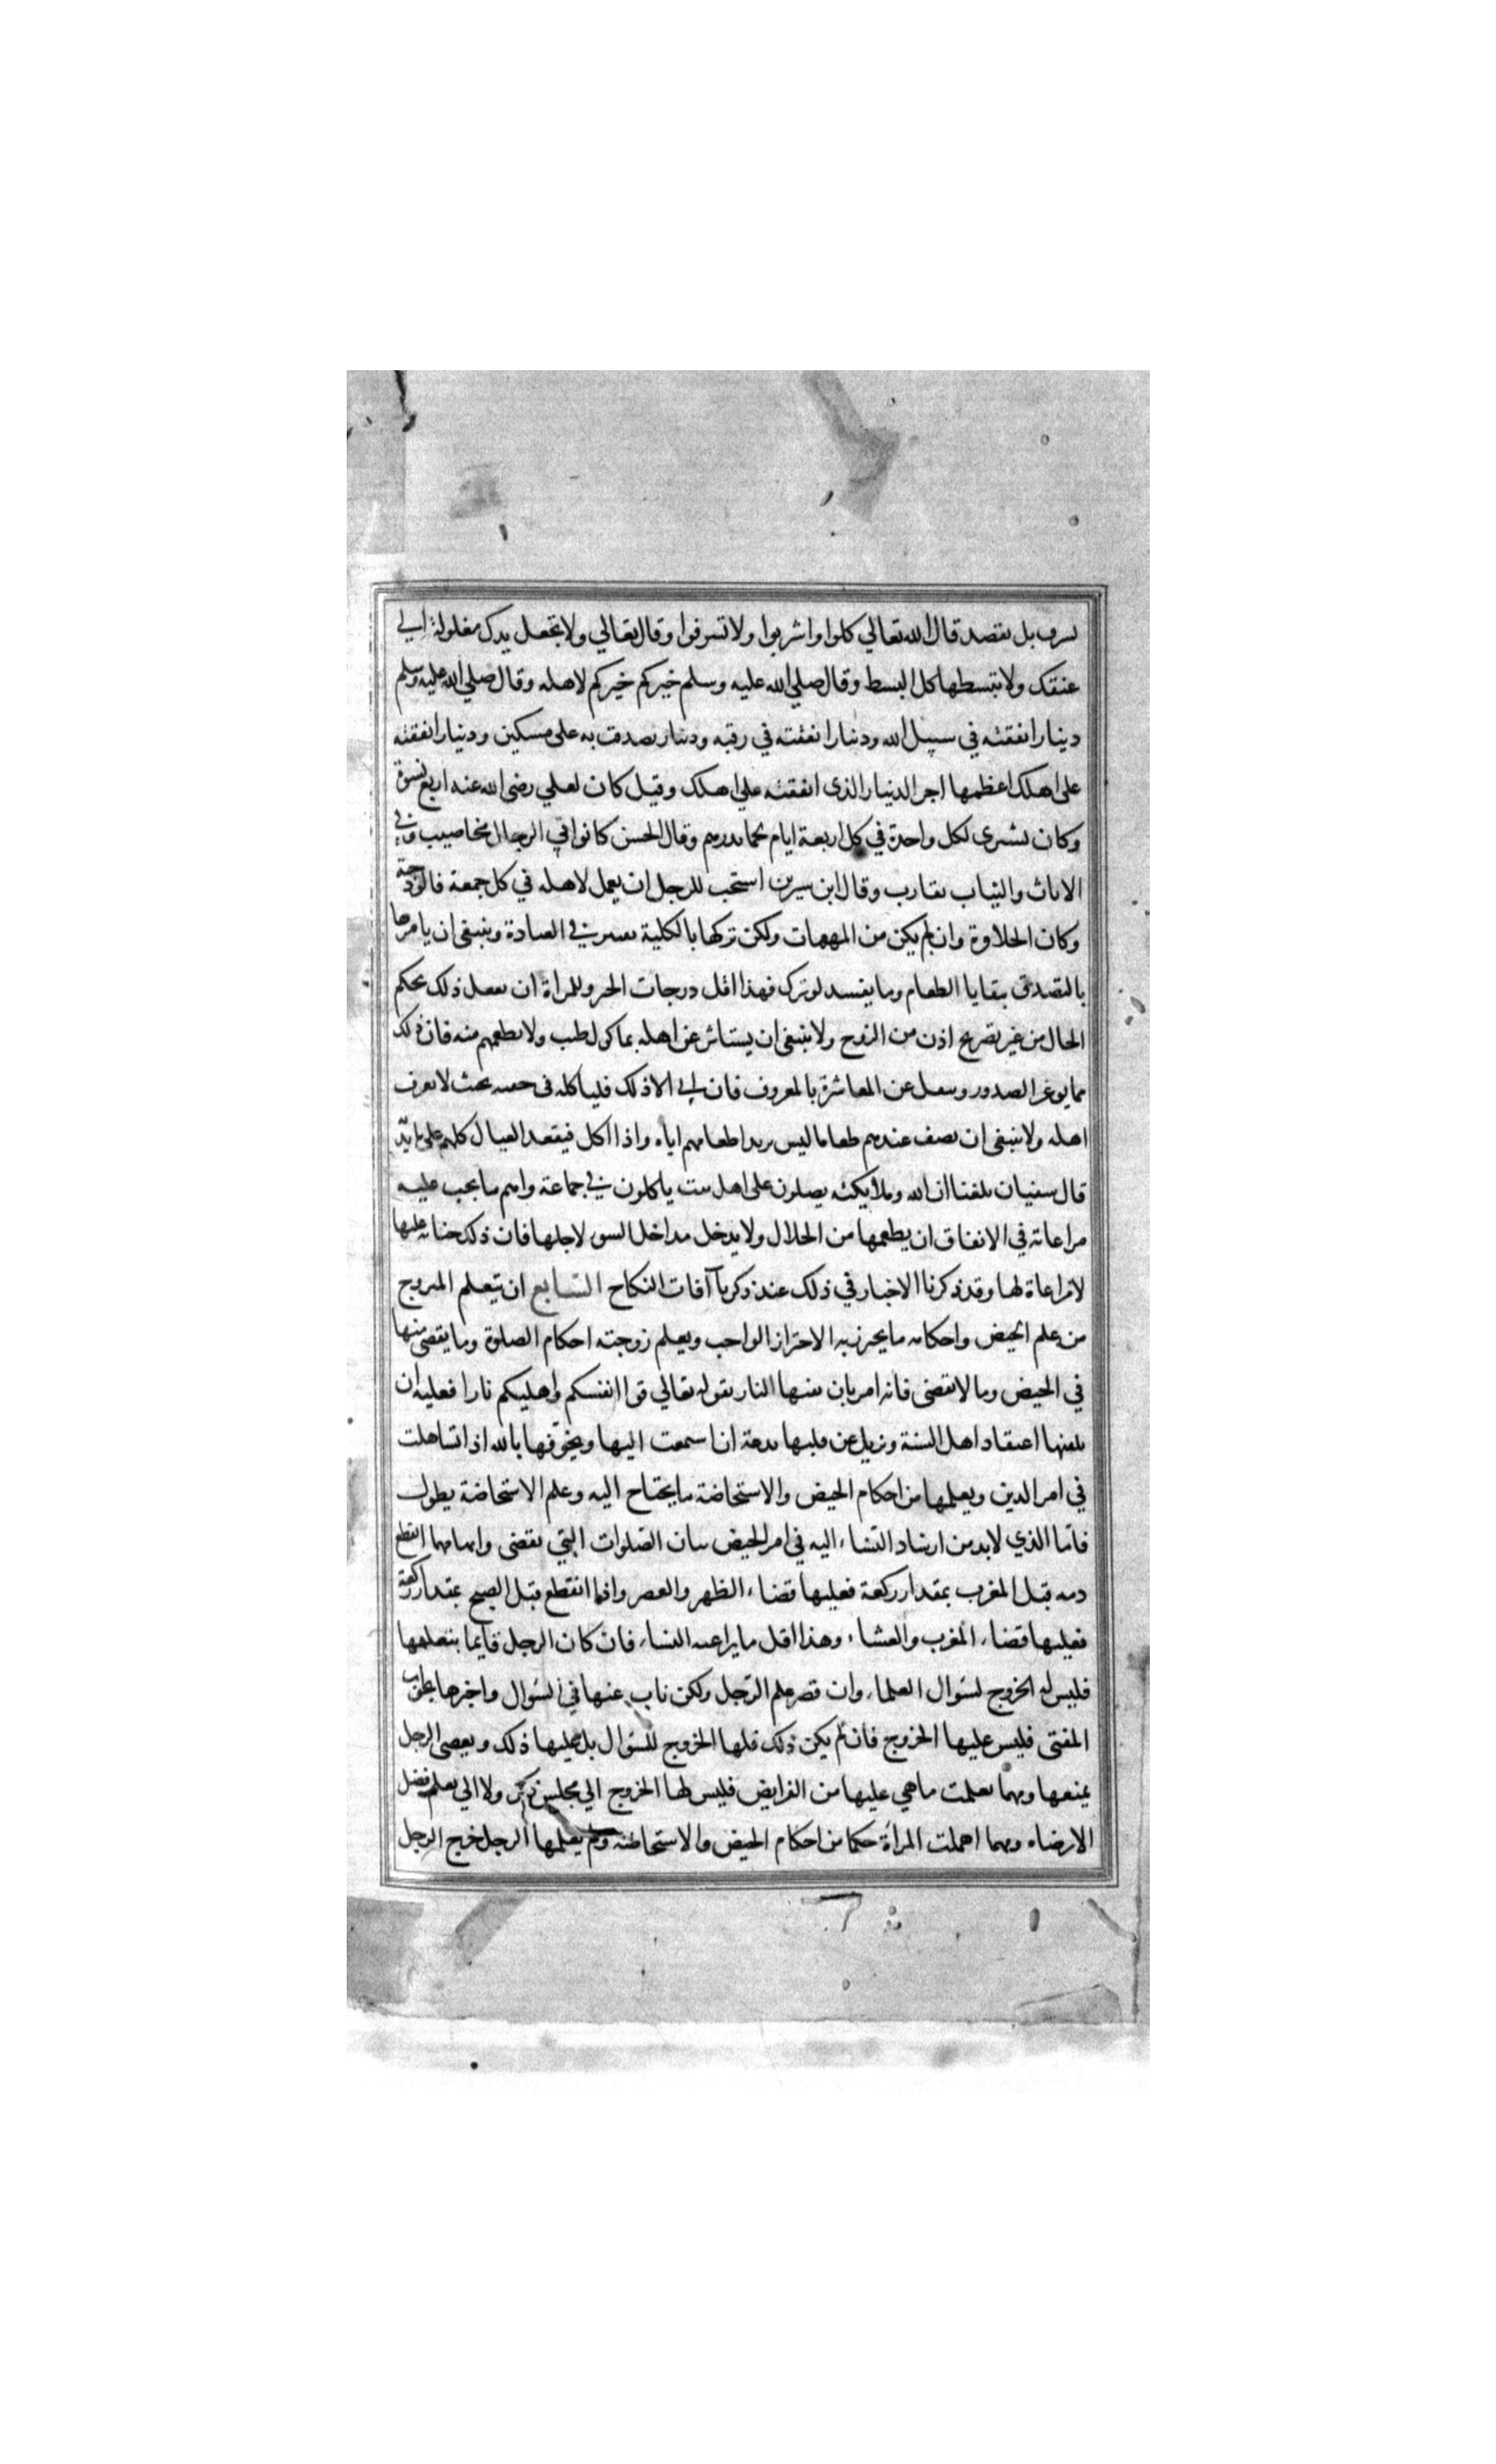 يسرف بل يقتصد قال الله تعالي كلوا واشربوا ولا تسرفوا وقال تعالي ولا تجعل يدك مغلولة الي
عنقك ولا تبسطها كل البسط وقال صلي الله عليه وسلم خيركم خيركم لاهله وقال صلي الله عليه وسلم
دينارا نفقته في سبيل الله ودينارا نفقته في رقبه ودينار تصدقت به على مسكين ودينارا نفقته
على اهلك اعظمها اجر الدينار الذى انفقته علي اهلك وقيل كان لعلي رضى الله عنه اربع نسوة
وكان يشترى لكل واحدة في كل اربعة ايام لحما بدرهم وقال الحسن كانوا في الرجال مخاصيب وفي
الاثاث والثياب مقارب وقال ابن سيرين استحب للرجل ان يعمل لاهله في كل جمعة فالوذجة
وكان الحلاوة وان لم يكن من المهمات ولكن تركها بالكلية تقتير في العادة وينبغى ان يامرها
بالتصدق ببقايا الطعام وما يفسد لو ترك فهذا اقل درجات الخير وللمراة ان تفعل ذلك بحكم
الحال من غير تصريح اذن من الزوج ولا ينبغى ان يستاثر عن اهله بماكول طيب ولا يطعمهم منه فان ذلك
مما يوغر الصدور ويبعد عن المعاشرة بالمعروف فان ابي الا ذلك فلياكله فى خفيه بحيث لا يعرف
اهله ولا ينبغى ان يصف عندهم طعاما ليس يريد اطعامهم اياه واذا اكل فيقعد العيال كلهم على مايدته
قال سفيان بلغنا ان الله وملايكته يصلون على اهل بيت ياكلون في جماعة واهم ما يجب عليه
مراعاته في الانفاق ان يطعمها من الحلال ولا يدخل مداخل السوء لاجلها فان ذلك جناية عليها
لا مراعاة لها وقد ذكرنا الاخبار في ذلك عند ذكرنا آفات النكاح السابع ان يتعلم المتزوج
من علم الحيض واحكامه ما يحترز به الاحتراز الواجب ويعلم زوجته احكام الصلوة وما يقضى منها
في الحيض وما لا يقضى فانه امر بان يقيها النار بقوله تعالي قوا انفسكم واهليكم نارا فعليه ان
يلقنها اعتقاد اهل السنة ويزيل عن قلبها بدعة ان استمعت اليها ويخوّفها بالله اذا تساهلت
في امر الدين ويعلمها من احكام الحيض والاستحاضة ما يحتاج اليه وعلم الاستحاضة يطول
فامّا الذي لا بد من ارشاد النساء اليه فى امر الحيض بيان الصّلوات التي تقضى وانها مهما انقطع
دمه قبل المغرب بمقدار ركعة فعليها قضاء الظهر والعصر واذا انقطع قبل الصبح بمقدار ركعة
فعليها قضاء المغرب والعشاء وهذا اقل ما يراعيه النساء فان كان الرجل قايما بتعليمها
فليس له الخروج لسّؤال العلماء وان قصر علم الرّجل ولكن ناب عنها في السّؤال واخبرها بجواب
المفتى فليس عليها الخروج فان لم يكن ذلك فلها الخروج للسّؤال بل عليها ذلك ويعصى الرجل
بمنعها ومهما تعلمت ما هي عليها من الفرايض فليس لها الخروج الي مجلس ذكر ولا الي تعلم فضل
الا رضاه ومهما اهملت المرأة حكما من احكام الحيض والاستحاضه ولم يعلمها الرجل خرج الرجل